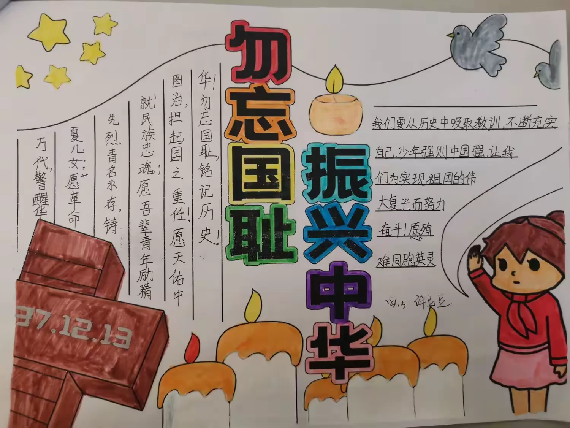 勿忘国耻
振兴中华
万代,警醒华
夏儿女;愿革命
先烈青名永存,铸
就民族忠魂;愿吾辈青年励精
图治,担起国之重任!愿天佑中
华!勿忘国耻,铭记历史!
我们要从历史中吸取教训,不断充实
自己,少年强则中国强,让我
们为实现祖国的伟
大复兴而努力
奋斗!愿殉
难同胞英灵
37.12.13